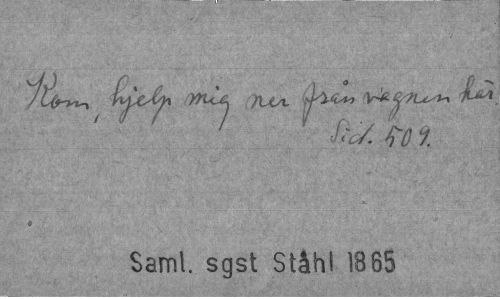 Kom, hjelp mig ner från vagnen här
Sid. 509.
Saml. sgst Ståhl 1865